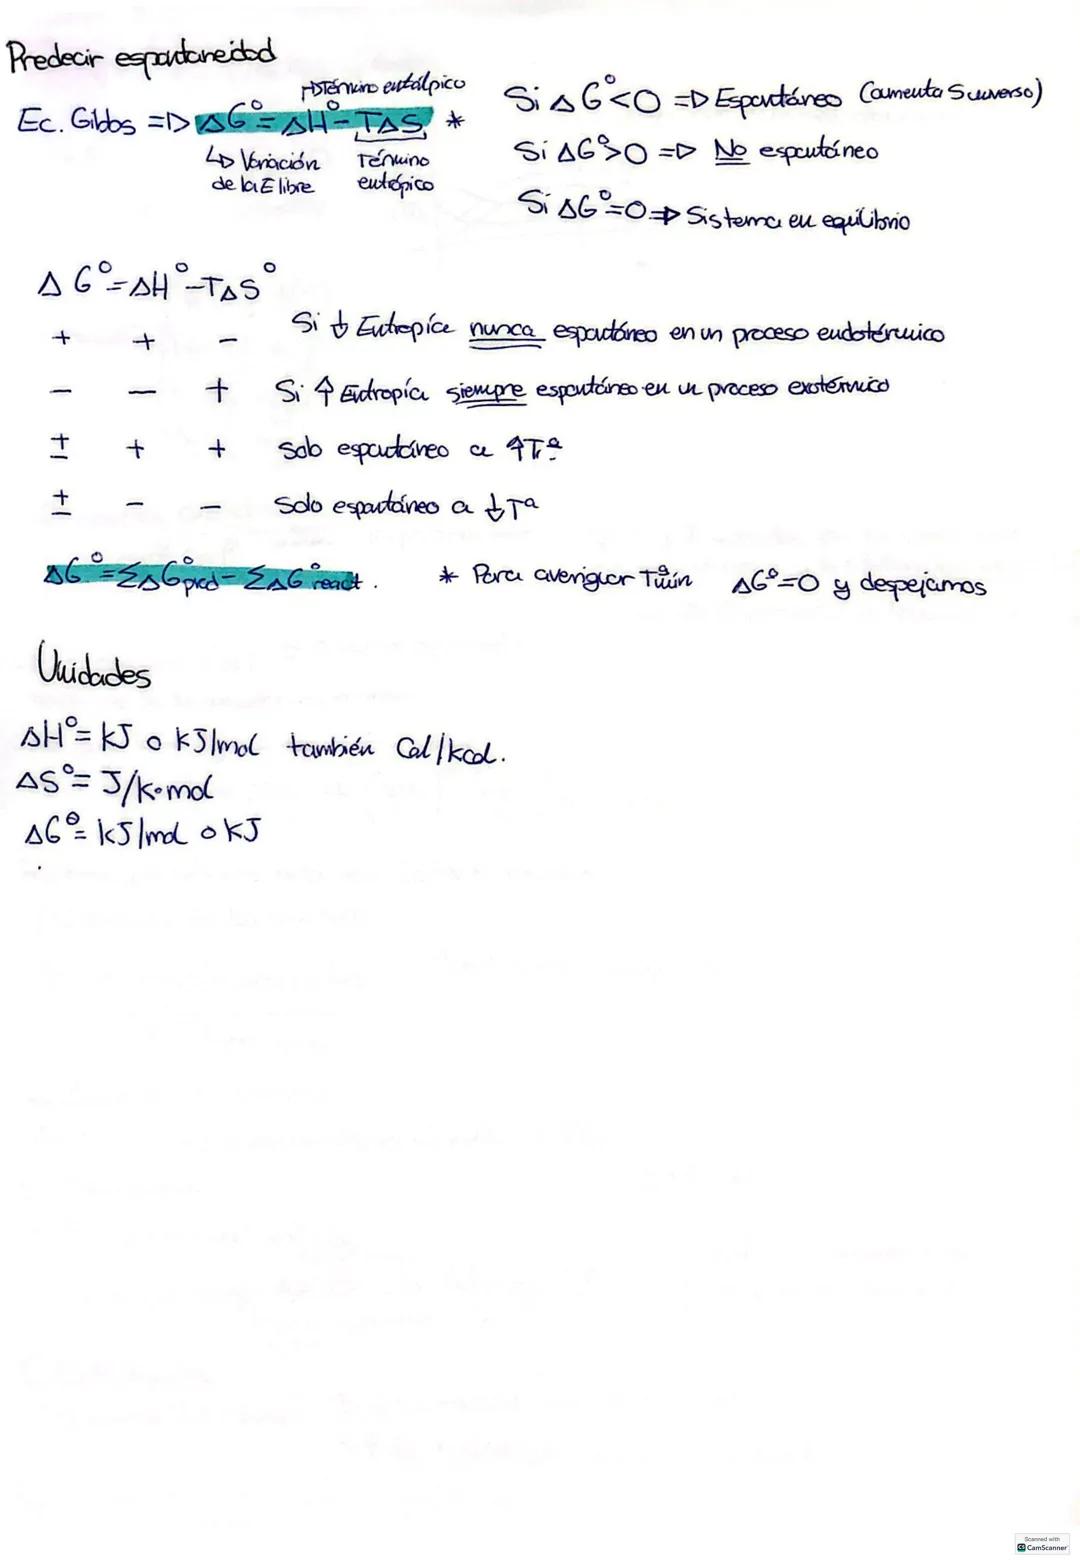 Predecir espontaneidad
↳Término entálpico
Ec. Gibbs => ΔGº = ΔHº - TΔS *
↳ Variación de la E libre
Término entrópico
Si ΔGº<0 => Espontáneo (aumenta S universo)
Si ΔGº>0 => No espontáneo
Si ΔGº=0 => Sistema en equilibrio
ΔGº=ΔHº-TΔSº
+ + - Si ↓ Entropíce nunca espontáneo en un proceso endotérmico
- - + Si ↑ Entropía siempre espontáneo en un proceso exotérmico
± + + Solo espontáneo a ↑Tª
± - - Solo espontáneo a ↓Tª
ΔGº=ΣΔGºprod - ΣΔGºreact. * Para averiguar Tªmín ΔGº=0 y despejamos
Unidades
ΔHº= kJ o kJ/mol también Cal/kcal.
ΔSº= J/K·mol
ΔGº= kJ/mol o kJ
Scanned with
CS CamScanner